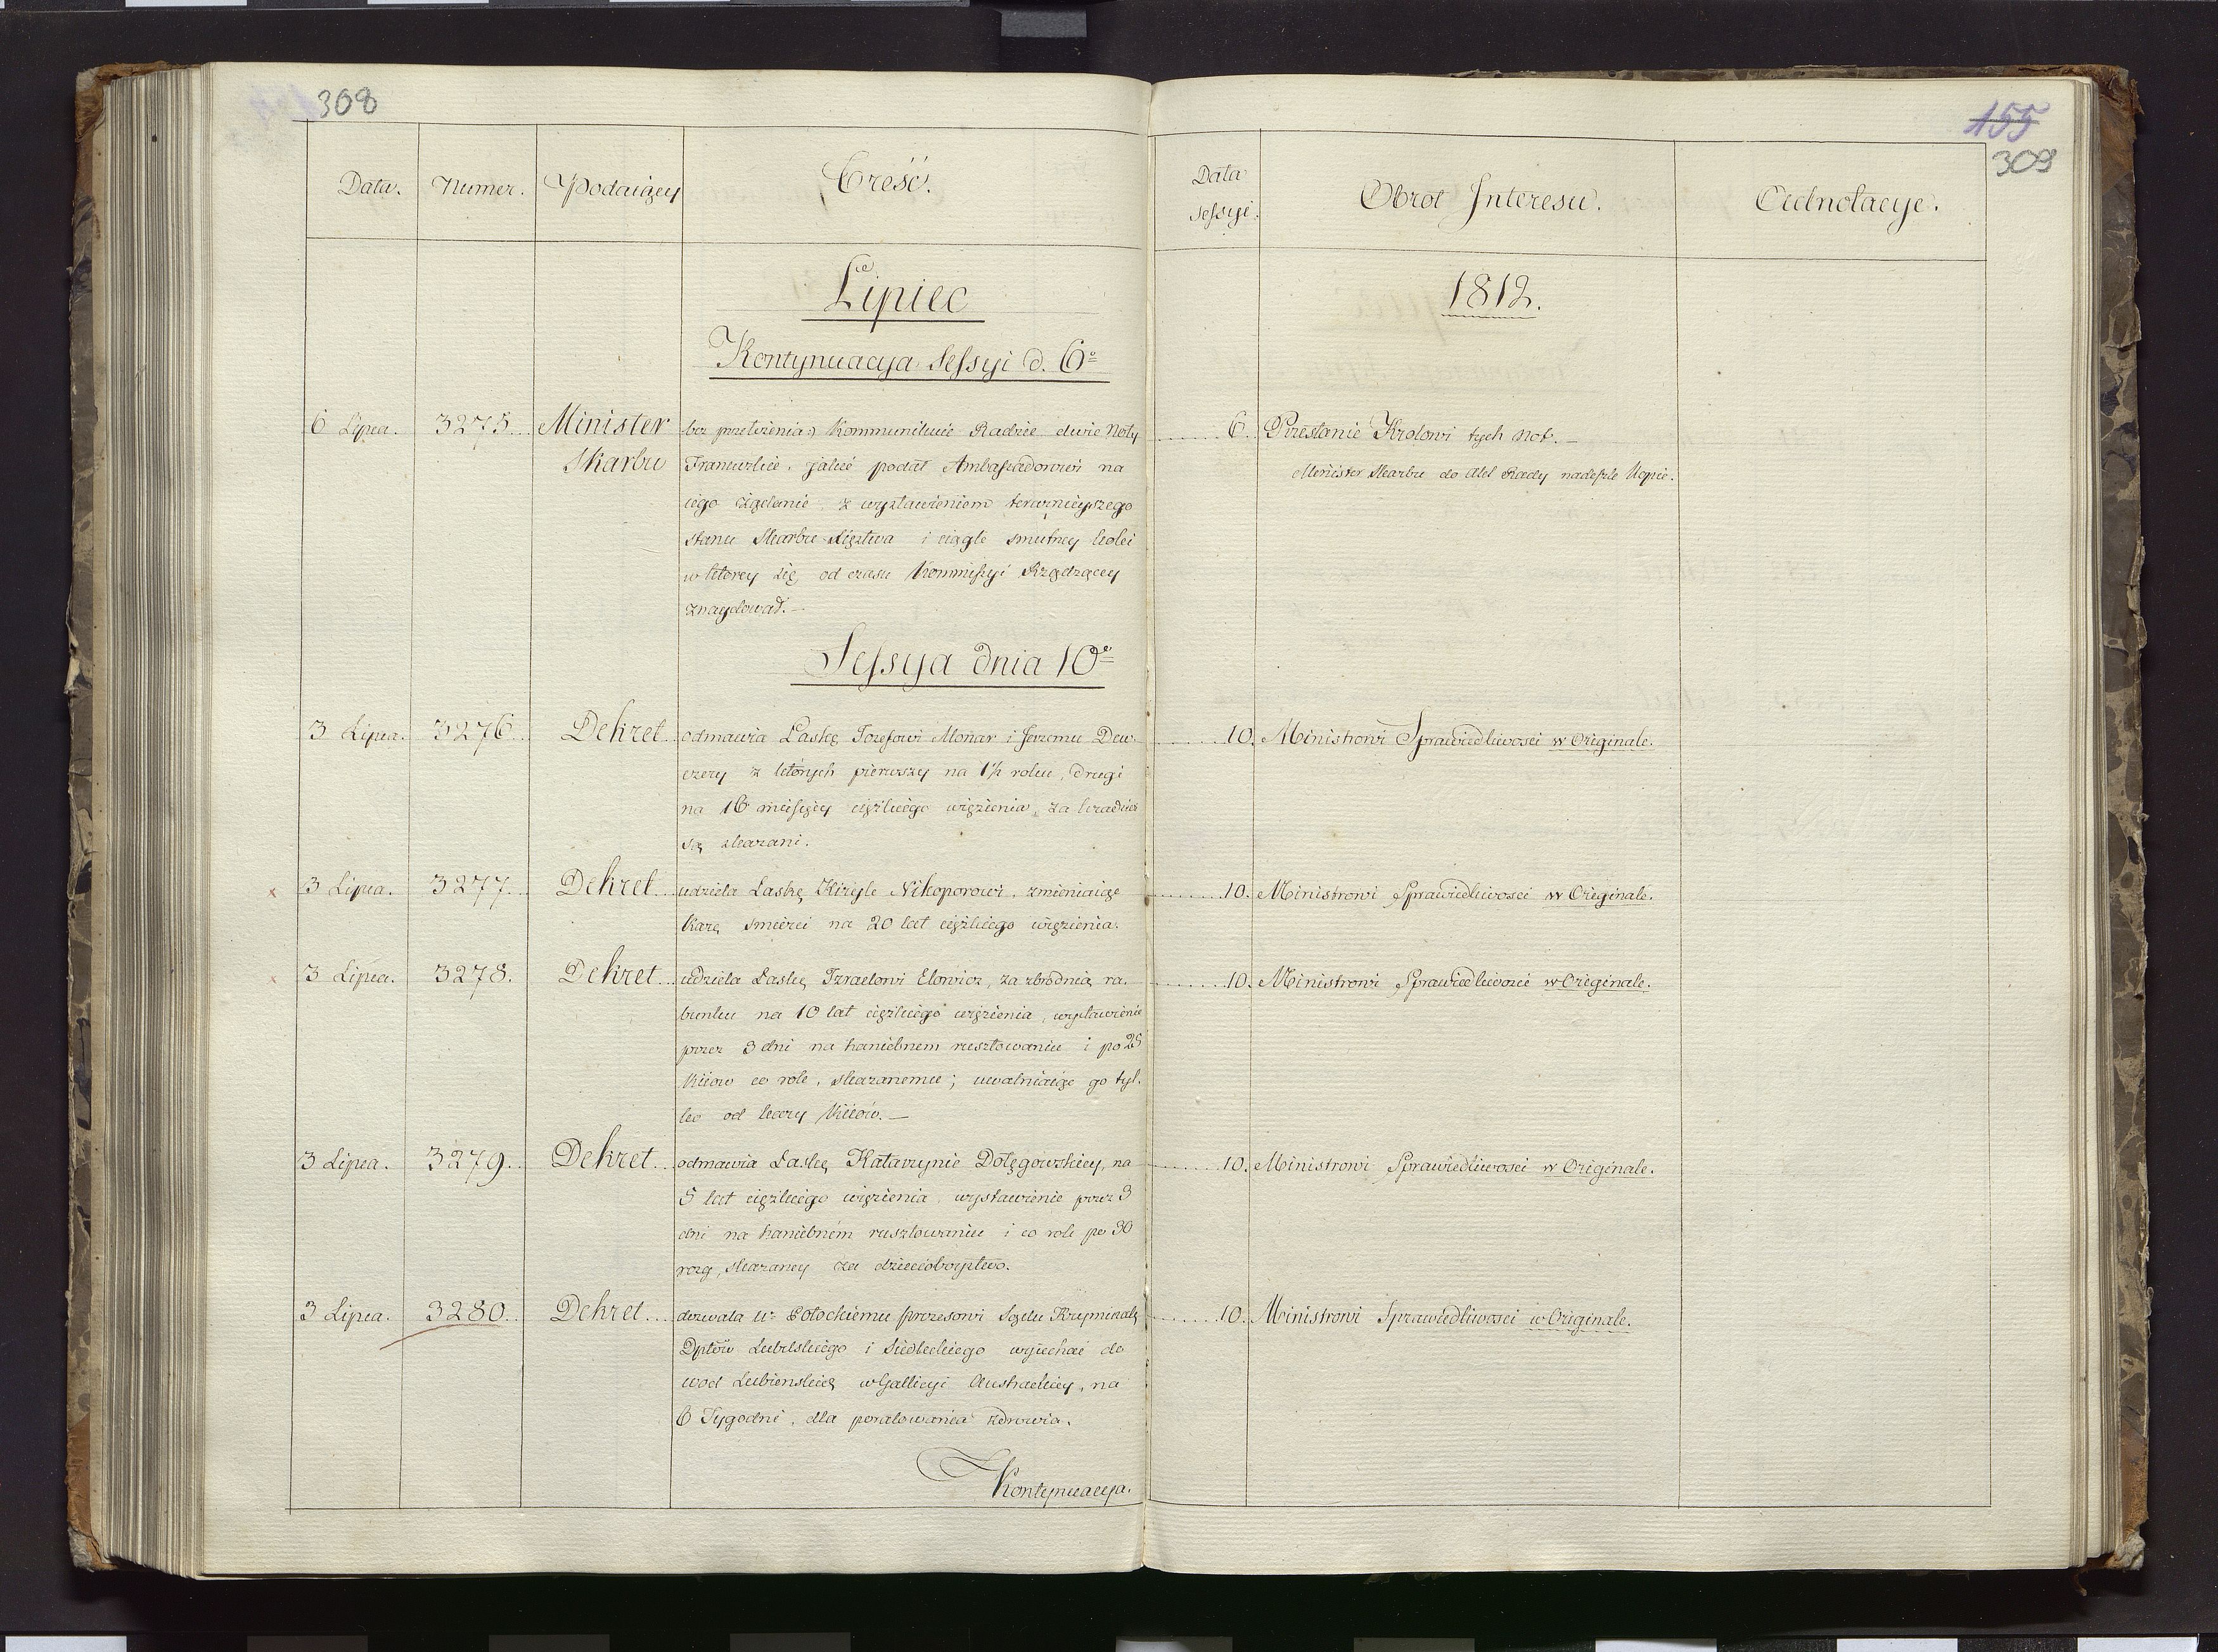 308
Data. Numer. Podaiący Treść.
Lipiec
Kontynuacya Sessyi d. 6º
6 Lipca. 3275. Minister Skarbu
bez przełożenia:) Kommunikuie Radzie dwie Noty
Francuzkie, jakie podał Ambassadorowi na
iego żądanie z wystawieniem terarnieyszego
stanu Skarbu Xięztwa i ciągle smutney kolei
w ktorey się od czasu Kommissyi Rządzącey
znaydował.—
Sessya dnia 10º
3 Lipca. 3276. Dekret
odmawia Łaskę Jozefowi Monar i Jerzemu Dew-
czery z których pierwszy na 1½ roku, drugi
na 16 miesięcy ciężkiego więzienia, za kradzież
są skazani.
3 Lipca. 3277. Dekret
udziela Łaskę Kiryle Nikoporowi, zmieniaiąc
karę śmierci na 20 lat ciężkiego więzienia.
3 Lipca. 3278. Dekret
udziela Łaskę Izraelowi Elowicz, za zbrodnią ra-
bunku na 10 lat ciężkiego więzienia, wystawienie
przez 3 dni na haniebnem rusztowaniu i po 25
kiiow co rok, skazanemu; uwalniaiąc go tyl-
ko od kary kiiów.—
3 Lipca. 3279. Dekret
odmawia Łaskę Katarzynie Dołęgowskiey, na
5 lat ciężkiego więzienia, wystawienie przez 3
dni na haniebném rusztowaniu i co rok po 30
rózg, skazaney za dzieciobóystwo.
3 Lipca. 3280. Dekret
dozwala Ur Potockiemu prezesowi Sądu Kryminalg
Dptów Lubelskiego i Siedleckiego wyiechać do
wod Lubienskich w Gallicyi Austryackiey, na
6 Tygodni, dla poratowania zdrowia.
Kontynuacya.
155
309
Data Sessyi. Obrot Interesu. Adnotacye.
1812.
6. Przesłanie Krolowi tych not.—
Minister Skarbu do Akt Rady nadeszle Kopie.
10. Ministrowi Sprawiedliwosci w Originale.
10. Ministrowi Sprawiedliwosci w Originale.
10. Ministrowi Sprawiedliwosci w Originale.
10. Ministrowi Sprawiedliwosci w Originale.
10. Ministrowi Sprawiedliwosci w Originale.